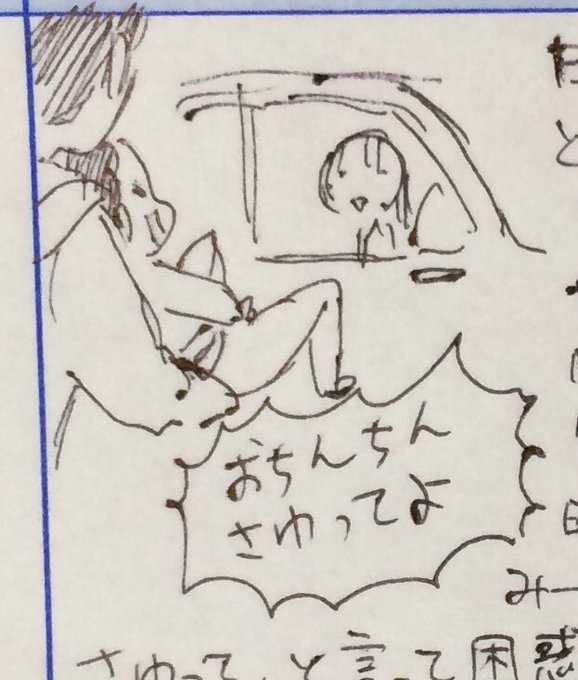 おちんちん
さゆってよ
と
日
みー
さゆって、と言って困惑